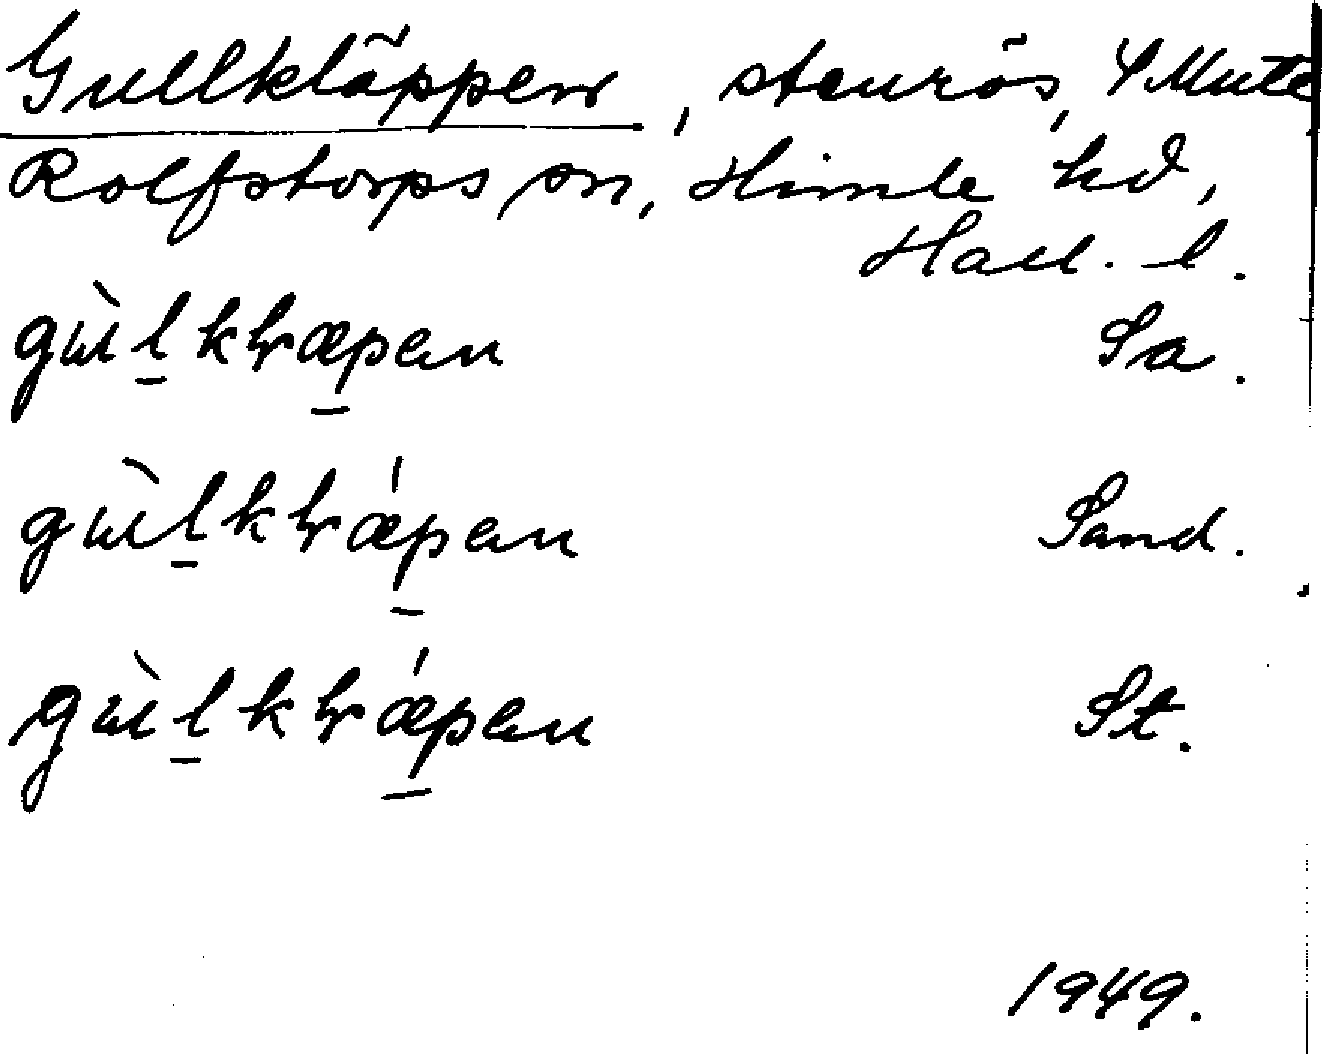 Gullkläppen, stenrös, 4 Mute
Rolfstorps sn, Himle hd,
Hall. l.
gùlkɽæpan Sa.
gùlkɽǽpan Sand.
gùlkɽǽpan St.
1949.